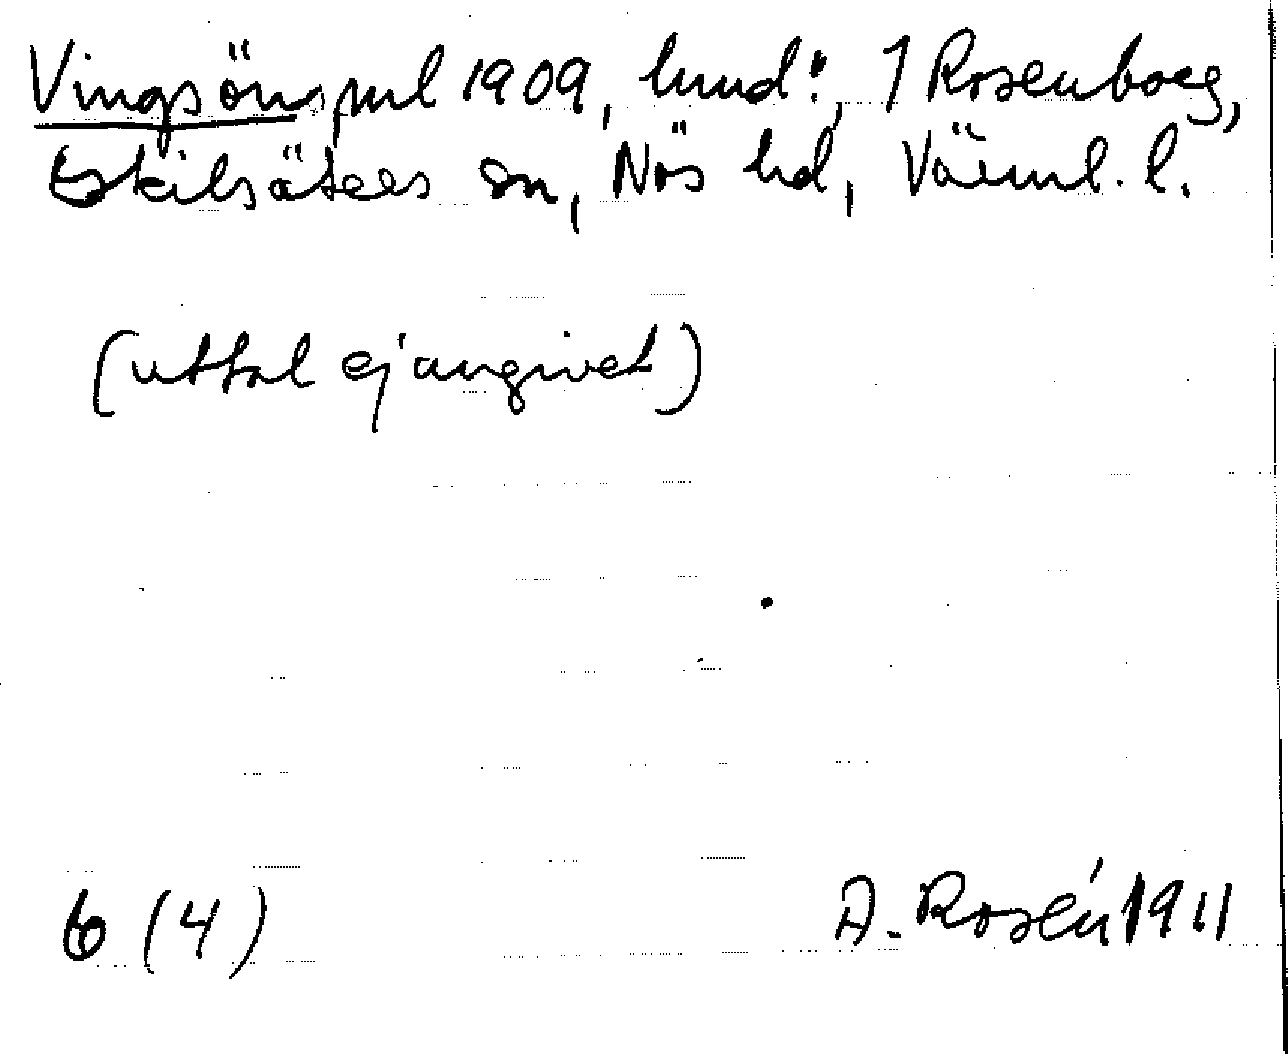 Vingsäng, pml 1909, hmd: 1 Rosenborg,
Eskilsäters sn, Näs hd, Värml. l.
(uttal ej angivet)
6 (4)
A. Rosén 1911